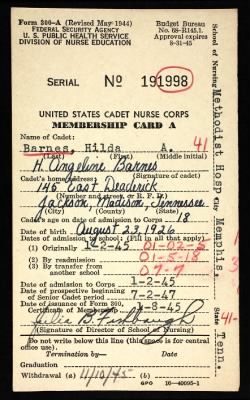 Form 300-A (Revised May-1944)
FEDERAL SECURITY AGENCY
U. S. PUBLIC HEALTH SERVICE
DIVISION OF NURSE EDUCATION
Budget Bureau
No. 68-R145.1.
Approval expires
8-31-45
SERIAL No 191998
UNITED STATES CADET NURSE CORPS
MEMBERSHIP CARD A
Name of Cadet:
Barnes, Hilda A. 41
(Last) (First) (Middle initial)
H. Angeline Barnes
Cadet's home address: (Signature of cadet)
145 East Deaderick
(Number and street, or R. F. D.)
Jackson, Madison, Tennessee
(City) (County) (State)
Cadet's age on date of admission to Corps 18
Date of birth August 23, 1926
Date of admission to school: (Fill in all that apply)
(1) Originally 1-2-45 01-02-8
(2) By readmission 01-5-18
(3) By transfer from another school 07-7
Date of admission to Corps 1-2-45
Date of prospective beginning
of Senior Cadet period 7-2-47
Date of issuance of Form 200,
Certificate of Membership
(Signature of Director of School of Nursing)
Do not write below this line (this space is for central
office use).
Termination by— Date
Graduation
Withdrawal (a) 11/10/45 (b)
GPO 16-40095-1
School of Nursing Methodist Hosp.
City Memphis,
State Tenn.
41-